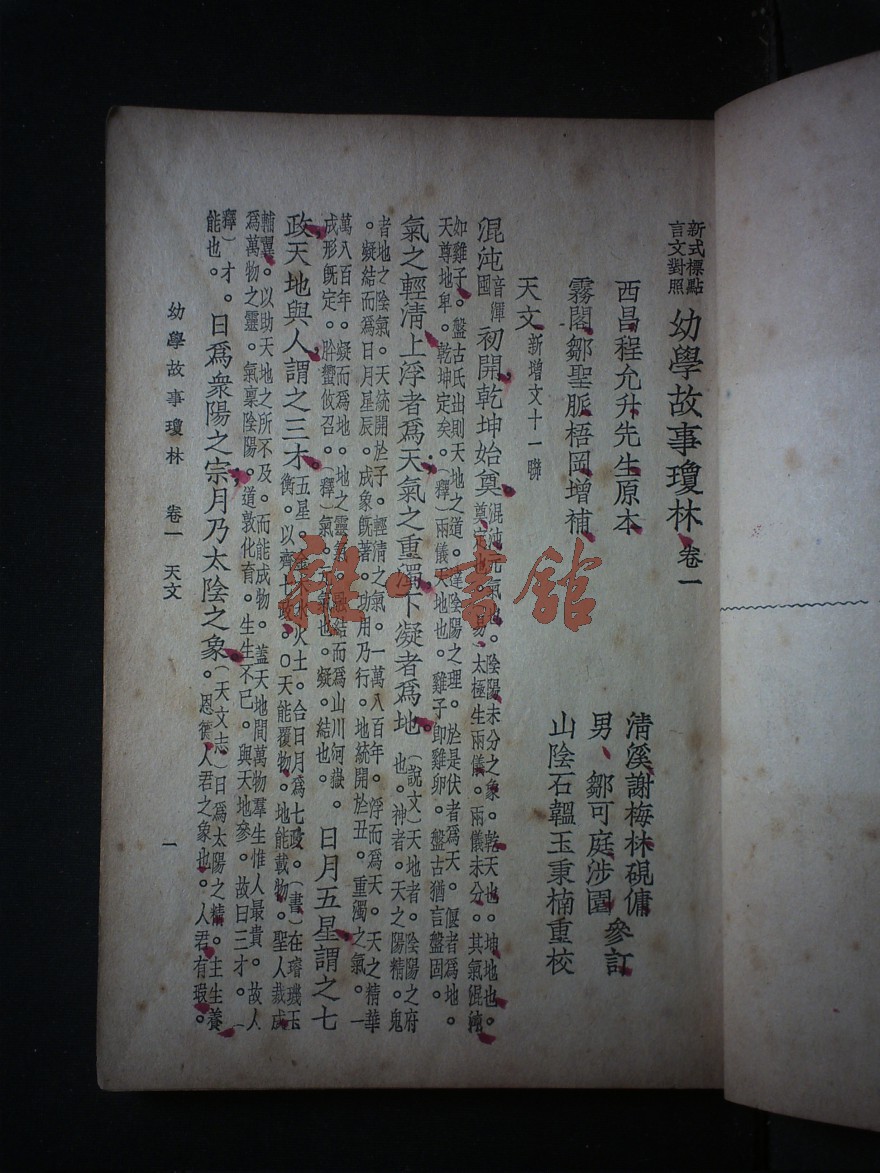 新式標點
言文對照
幼學故事瓊林 卷一
西昌程允升先生原本
清溪謝梅林硯傭
霧閣鄒聖脈梧岡增補
男、鄒可庭涉園 參訂
山陰石韞玉秉楠重校
天文 新增文十一聯
混沌 音渾 國 初開乾坤始奠
混沌元氣也。陰陽未分之象。乾天也。坤地也。
奠定也。易、太極生兩儀。兩儀未分。其氣混沌
如雞子。盤古氏出則天地之道。達陰陽之理。於是伏者爲天。偃者爲地。
天尊地卑。乾坤定矣。(釋)兩儀天地也。雞子卽雞卵。盤古猶言盤固。
氣之輕清上浮者爲天氣之重濁下凝者爲地。
(說文)天地者。陰陽之府
也。神者。天之陽精。鬼
者地之陰氣。天統開於子。輕清之氣。一萬八百年。浮而爲天。天之精華
。凝結而爲日月星辰。成象旣著。功用乃行。地統開於丑。重濁之氣。一
萬八百年。凝而爲地。地之靈氣。融結而爲山川河嶽。
成形旣定。肸蠁攸召。(釋)氣。元氣也。凝。結也。
日月五星謂之七
政天地與人謂之三才
五星。金木水火土。合日月爲七政。(書)在璿璣玉
衡。以齊七政。〇天能覆物。地能載物。聖人裁成
輔翼。以助天地之所不及。而能成物。蓋天地間萬物羣生惟人最貴。故人
爲萬物之靈。氣稟陰陽。道敦化育。生生不已。與天地參。故曰三才。(
釋)才。
能也。
日爲衆陽之宗月乃太陰之象。
(天文志)日爲太陽之精。主生養
恩德。人君之象也。人君有瑕。
幼學故事瓊林 卷一 天文
一
雜·書館